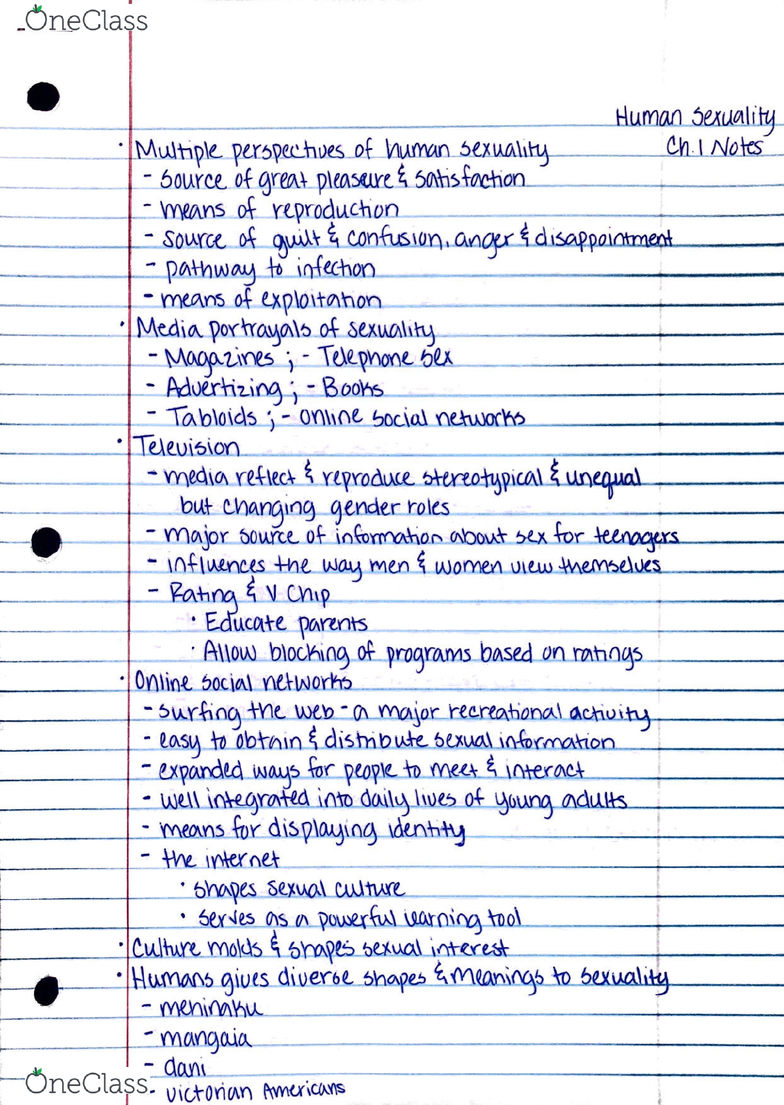 OneClass
Human Sexuality
Ch.1 Notes
· Multiple perspectives of human sexuality
- source of great pleasure & satisfaction
- means of reproduction
- source of guilt & confusion, anger & disappointment
- pathway to infection
- means of exploitation
· Media portrayals of sexuality
- Magazines ; - Telephone sex
- Advertizing ; - Books
- Tabloids ; - online social networks
· Television
- media reflect & reproduce stereotypical & unequal
but changing gender roles
- major source of information about sex for teenagers
- influences the way men & women view themselves
- Rating & V Chip
· Educate parents
· Allow blocking of programs based on ratings
· Online social networks
- surfing the web - a major recreational activity
- easy to obtain & distribute sexual information
- expanded ways for people to meet & interact
- well integrated into daily lives of young adults
- means for displaying identity
- the internet
· shapes sexual culture
· serves as a powerful learning tool
· Culture molds & shapes sexual interest
· Humans gives diverse shapes & meanings to sexuality
- mehinaku
- mangaia
- dani
OneClass
- victorian Americans